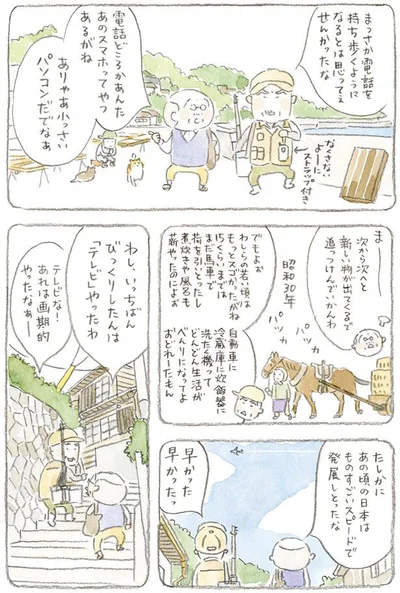 まっさか電話を
持ち歩くように
なるとは思てえ
せんかったな
なくさない
よーに
ストラップ付き
電話どころかあんた
あのスマホってやつ
あるがね
ありゃあ小っさい
パソコンだでなぁ
ま
次から次へと
新しい物が出てくるで
追っつけんでいかんわ
昭和30年
パッカ
パッカ
でもよぉ
わしらの若い頃は
もっとスゴかったがね
15くらいまでは
まだ馬車で
荷を引いったし
煮炊きや風呂も
薪やったのによぉ
自動車に
冷蔵庫に炊飯器に
洗たく機って
どんどん生活が
べんりになってよ
おどれーたもん
たしかに
あの頃の日本は
ものすごいスピードで
発展しとったな
早かった
早かったっ
わし、いっちばん
びっくりしたんは
「テレビ」やったわ
テレビな!
あれは画期的
やったなぁー